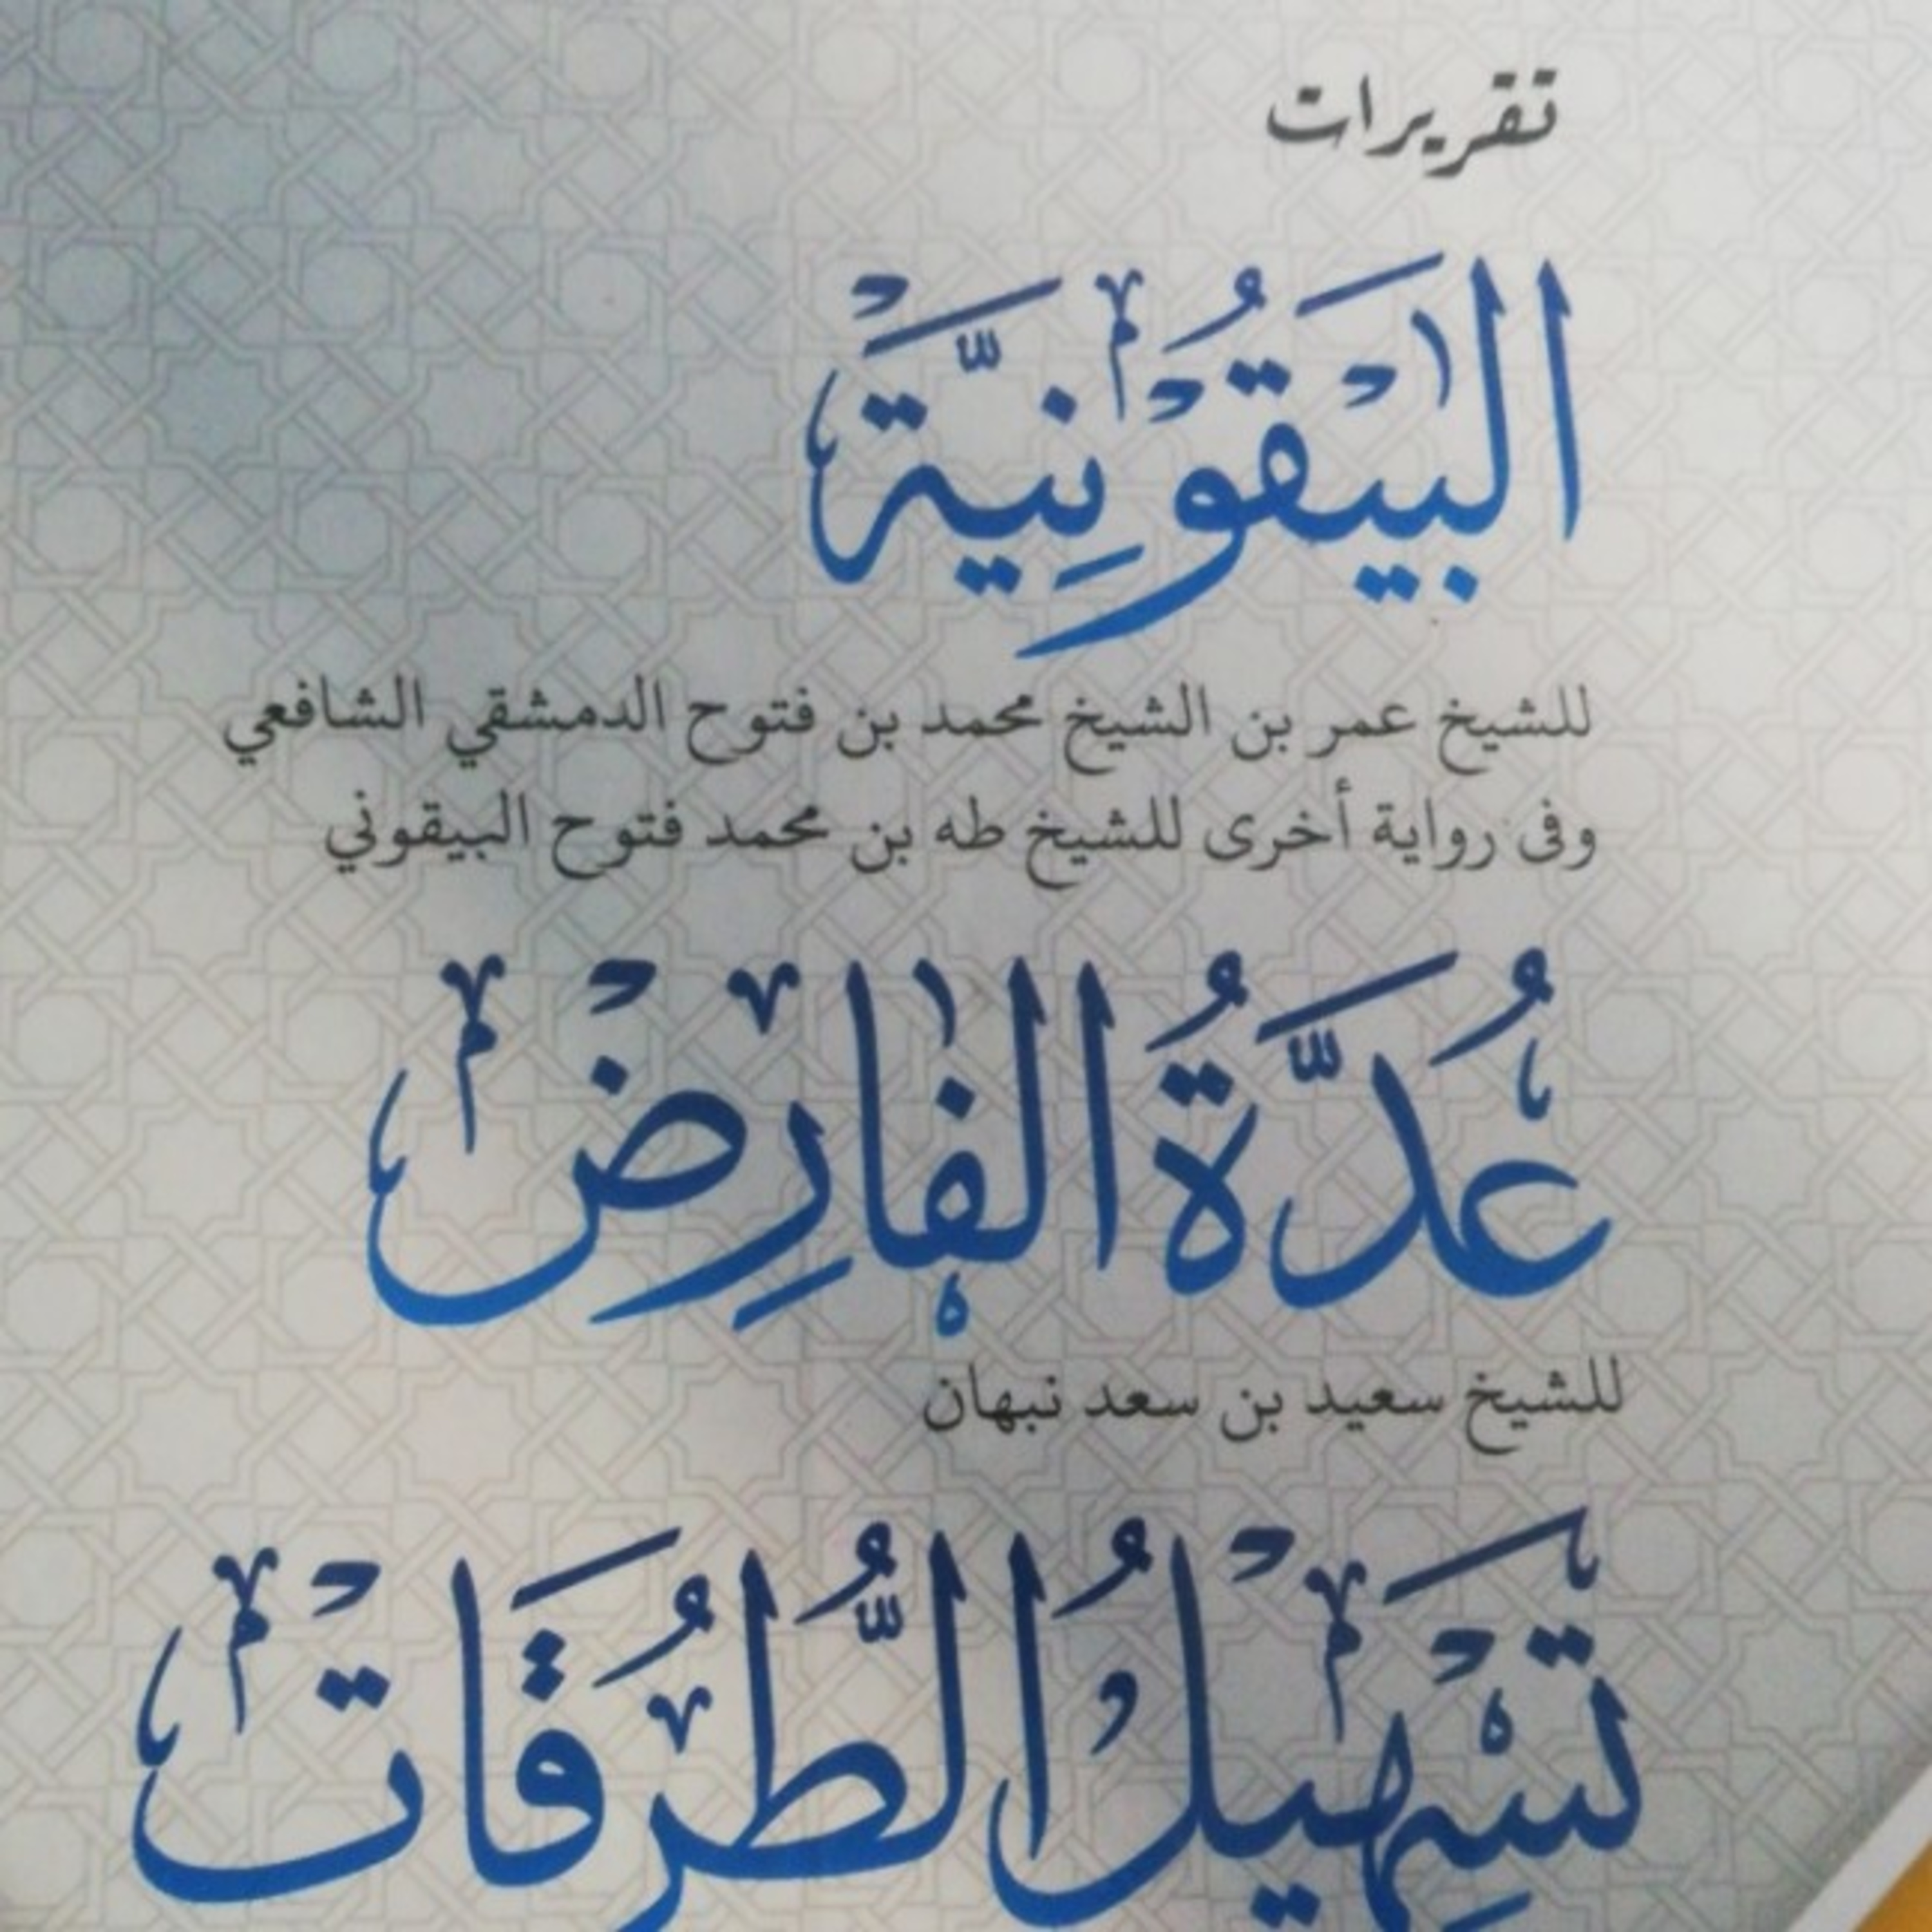 تقريرات
البَيْقُوْنِيَّةْ
للشيخ عمر بن الشيخ محمد بن فتوح الدمشقي الشافعي
وفى رواية أخرى للشيخ طه بن محمد فتوح البيقوني
عُدَّةُ الفَارِضْ
للشيخ سعيد بن سعد نبهان
تَسْهِيْلُ الطُّرُقَاتْ